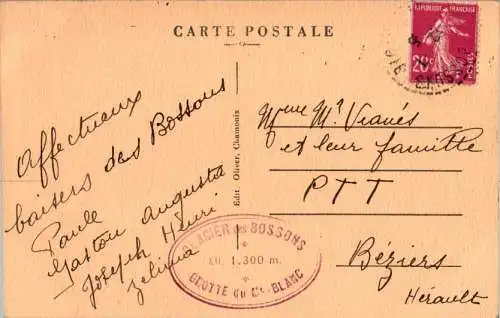 CARTE POSTALE
RÉPUBLIQUE FRANÇAISE
20c
POSTES
Affectueux
baisers des Bossons
Paule
Gaston Augusta
Joseph Henri
Zelima
Edit Oliver, Chamonix
GLACIER des BOSSONS
Alt. 1.300 m.
GROTTE du Mt-BLANC
Mme Mr Vianés
et leur famille
PTT
Béziers
Hérault